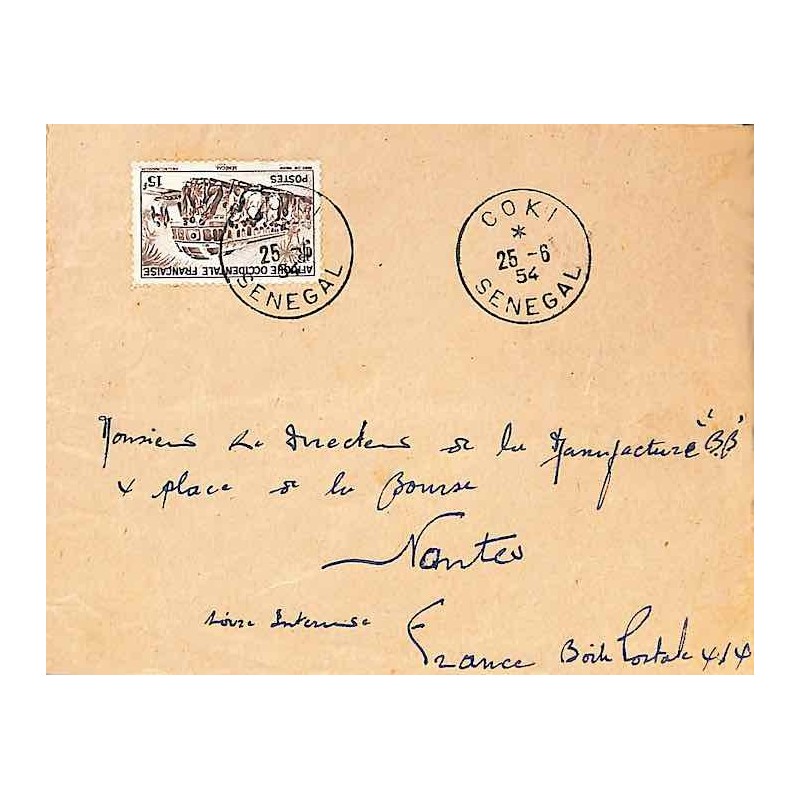 AFRIQUE OCCIDENTALE FRANÇAISE
POSTES 15F
SENEGAL
25
54
SENEGAL
COKI
*
25 - 6
54
SENEGAL
Monsieur Le Directeur de la Manufacture "B.B"
4 place de la Bourse
Nantes
Loire Inférieure
France Boite Postale 414